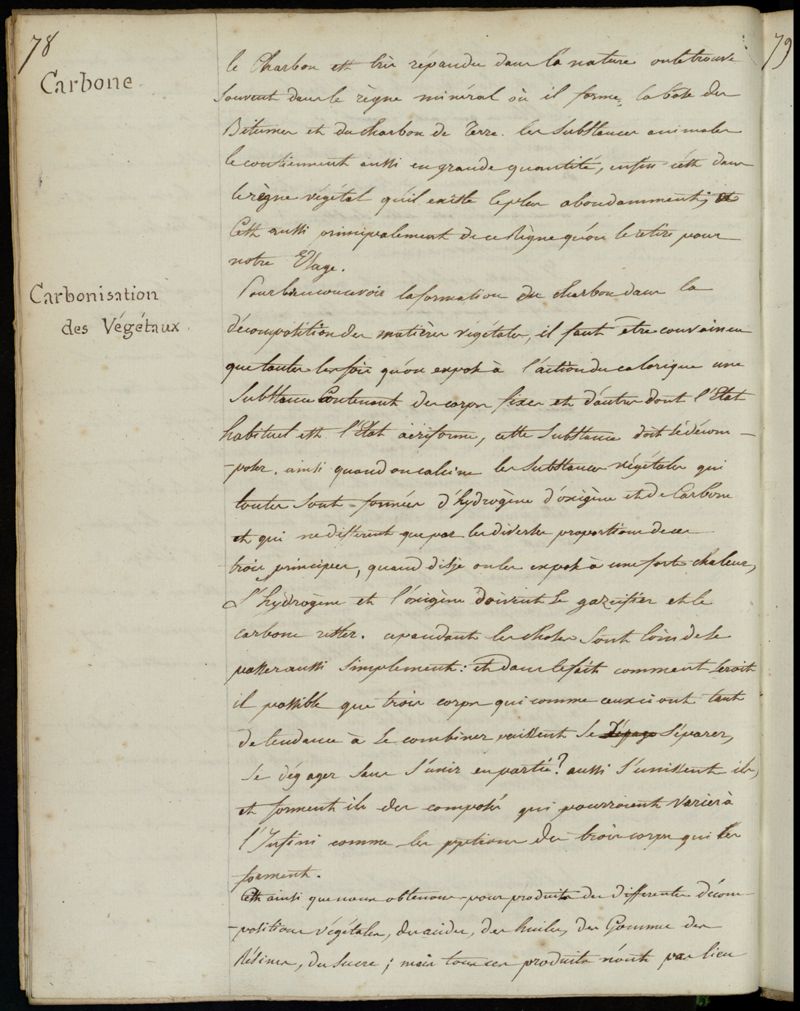 78
79
Carbone
le Charbon est très répandu dans la nature on le trouve
souvent dans le règne minéral où il forme, la base des
Bitumes et du charbon de Terre. les substances animales
le contiennent aussi en grande quantité, enfin c'est dans
le règne végétal qu'il existe le plus abondamment; et
C'est aussi principalement de ce Règne qu'on le retire pour
notre Usage.
Carbonisation
des Végétaux.
Pour bien concevoir la formation du charbon dans la
décomposition des matières végétales, il faut être convaincu
que toutes les fois qu'on expose à l'action du calorique une
Substance Contenant des corps fixes et d'autres dont l'Etat
habituel est l'Etat aëriforme, cette substance doit se décom-
-poser. ainsi quand on calcine les substances végétales qui
toutes sont formées d'hydrogène d'oxigène et de Carbone
et qui ne diffèrent que par les diverses proportions de ces
trois principes, quand disje on les expose à une forte chaleur,
l'hydrogène et l'oxigène doivent se gazeifier et le
carbone rester. cependant les choses sont loin de se
passer aussi simplement: et dans le fait comment seroit
il possible que trois corps qui comme ceux ci ont tant
de tendance à se combiner puissent se Dégage séparer,
se dégager sans s'unir en partie? aussi s'unissent ils,
et forment ils des composés qui pourroient varier à
l'Infini comme les pptions des trois corps qui les
forment.
C'est ainsi que nous obtenons pour produits des différentes décom-
-positions végétales, des acides, des huiles, des Gommes des
Résines, du Sucre; mais tous ces produits n'ont pas lieu